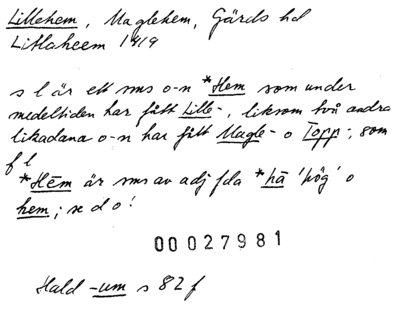 Lillehem, Maglehem, Gärds hd
Litlaheem 1419
s l är ett sms o-n *Hem som under
medeltiden har fått Lille-, liksom två andra
likadana o-n har fått Magle- o Topp-, som
f l
*Hēm är sms av adj fda *hā 'hög' o
hem; se d o!
00027981
Hald -um s 82 f